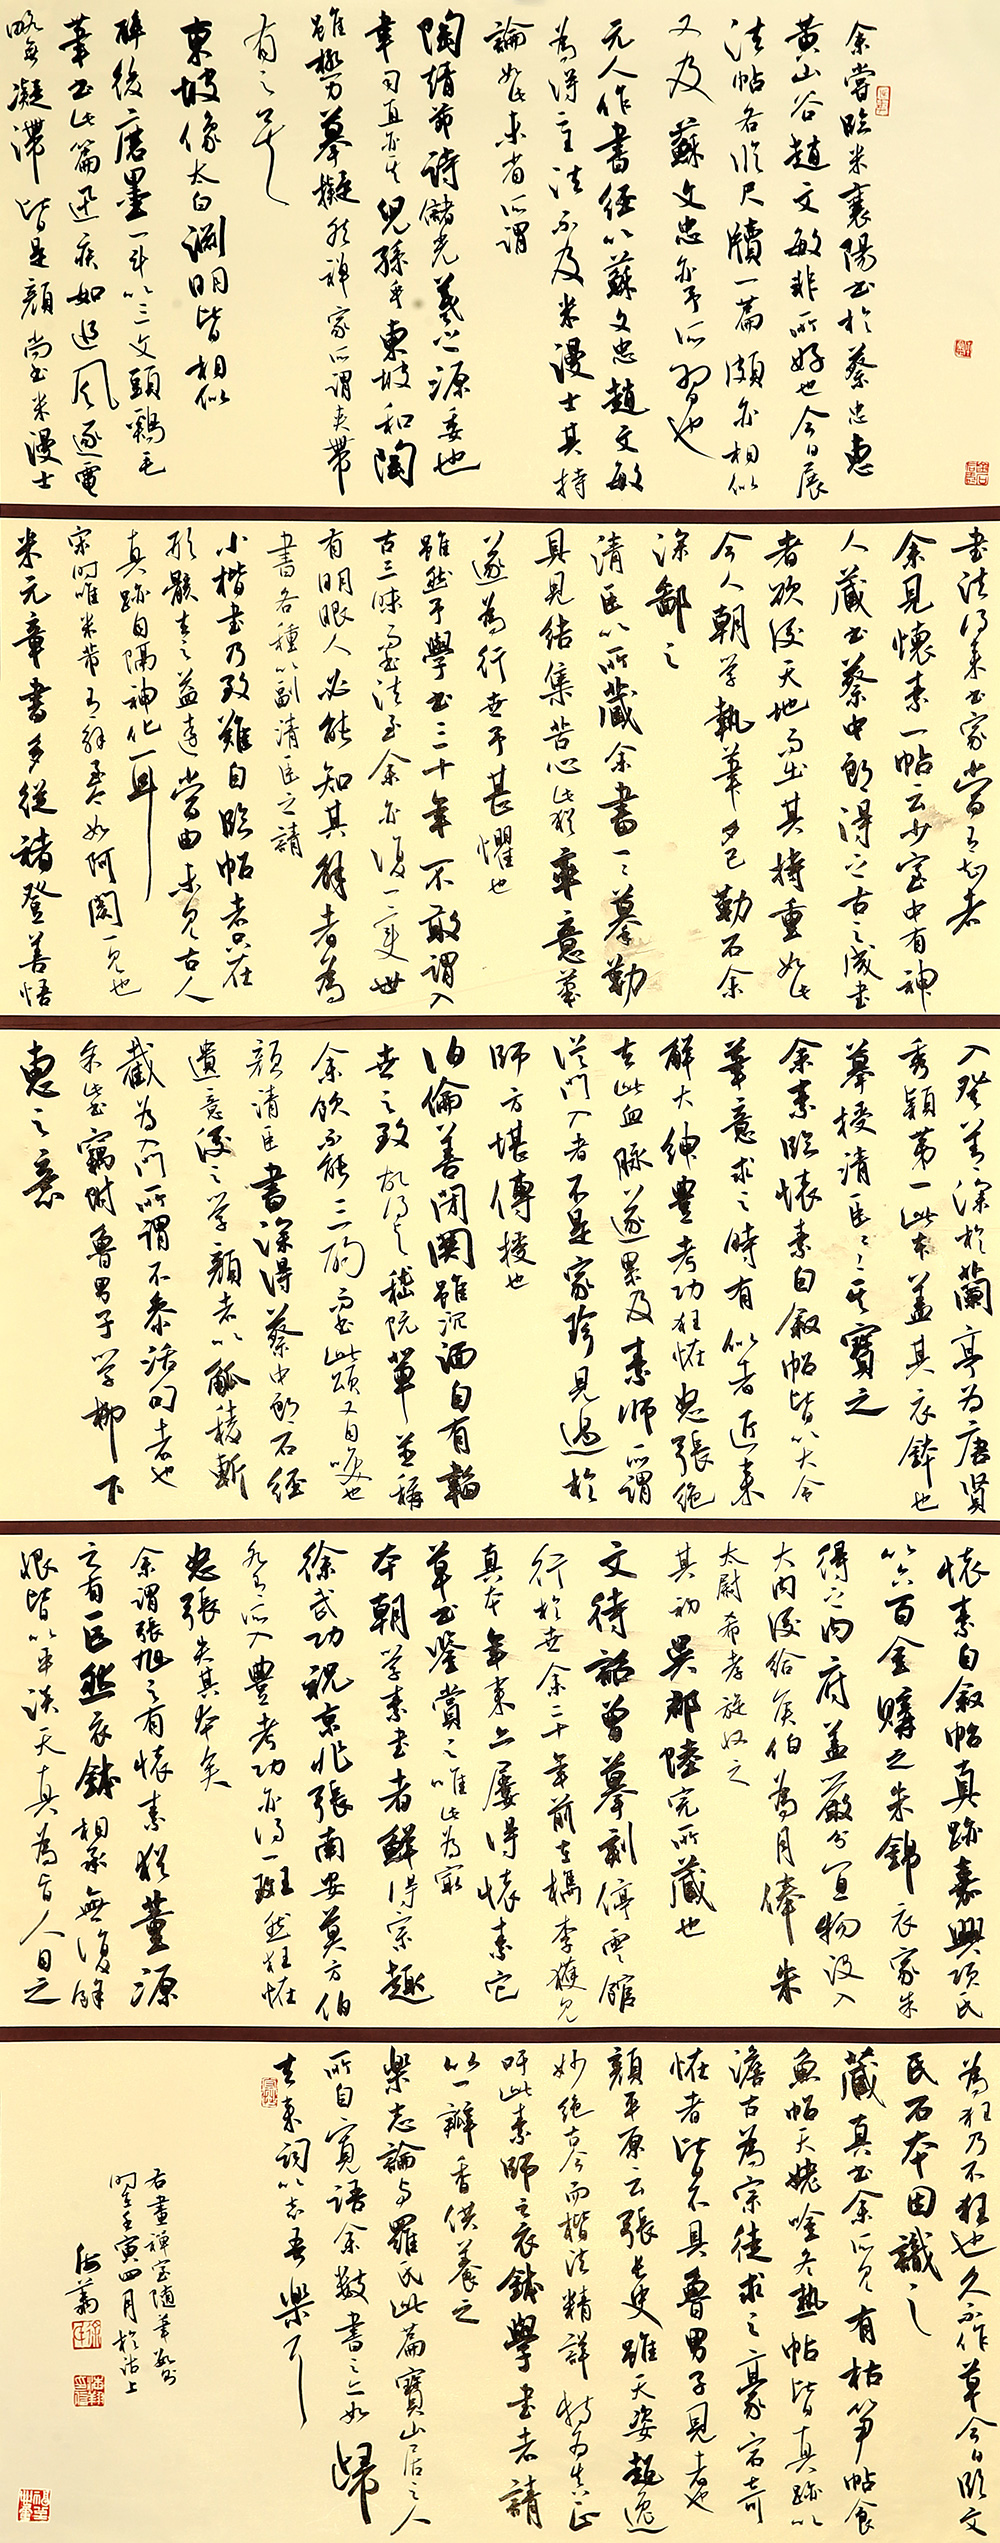 余嘗臨米襄陽書於蔡忠惠
黃山谷趙文敏非所好也今日展
法帖各臨尺牘一篇頗亦相似
又及蘇文忠亦予所習也
元人作書經以蘇文忠趙文敏
為得主法不及米漫士其持
論如此米者所謂
陶靖節詩儲光羲之源委也
韋司直亦其兒孫乎東坡和陶
雖極力摹擬然禪家所謂夾帶
有之耳
東坡像太白淵明皆相似
醉後磨墨一斗以三文頭鷄毛
筆書此篇迅疾如追風逐電
略無凝滯皆是顏尚書米漫士
書法得來書家當有知者
余見懷素一帖云少室中有神
人藏書蔡中郎得之古之成書
者欲後天地而出其持重如此
今人朝學執筆夕已勒石余
深鄙之
清臣以所藏余書一一摹勒
具見結集苦心此猶率意筆
遂為行世予甚懼也
雖然予學書三十年不敢謂入
古三昧而書法至余亦復一變世
有明眼人必能知其解者為
書各種以副清臣之請
小楷書乃致難自臨帖者只在
形骸去之益遠當由未見古人
真跡自隔神化一耳
宋時唯米芾有解悉如阿閦一見也
米元章書多從褚登善悟
入登善深於蘭亭為唐賢
秀穎第一此本蓋其衣鉢也
摹授清臣清臣其寶之
余素臨懷素自敘帖皆以大令
筆意求之時有似者近來
解大紳豐考功狂怪怒張絕
去此血脈遂累及素師所謂
從門入者不是家珍見過於
師方堪傳授也
伯倫善閉關雖沉湎自有韜
世之致故得與嵇阮輩並稱
余飲不能三酌而書此頌又自嘆也
顏清臣書深得蔡中郎石經
遺意後之學顏者以觚稜斬
截為入門所謂不參活句者也
余此書竊附魯男子學柳下
惠之意
懷素自敘帖真跡嘉興項氏
以六百金購之朱錦衣家朱
得之內府蓋嚴分宜物沒入
大內後給侯伯為月俸朱
太尉希孝旋收之
其初吳郡陸完所藏也
文待詔曾摹刻停雲館
行於世余二十年前在檇李獲見
真本年來亦屢得懷素它
草書鑒賞之唯此為最
本朝學素書者鮮得宗趣
徐武功祝京兆張南安莫方伯
各有所入豐考功亦得一班然狂怪
怒張失其本矣
余謂張旭之有懷素猶董源
之有巨然衣鉢相承無復餘
恨皆以平淡天真為旨人目之
為狂乃不狂也久不作草今日臨文
氏石本因識之
藏真書余所見有枯筍帖食
魚帖天姥唫冬熱帖皆真跡以
澹古為宗徒求之豪宕奇
怪者皆不具魯男子見者也
顏平原云張長史雖天姿超逸
妙絕古今而楷法精詳特為真正
吁此素師之衣鉢學書者請
以一瓣香供養之
樂志論與羅氏此篇寶山居之人
所自寬語余數書之亦如歸
去來詞以志吾樂耳
右畫禪室隨筆數則
時壬寅四月於沽上